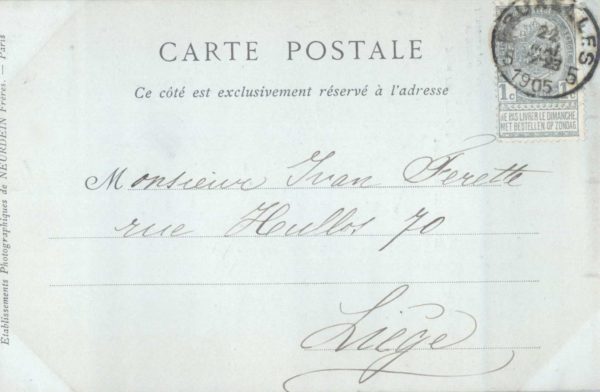 CARTE POSTALE
Ce côté est exclusivement réservé à l'adresse
BRUXELLES
1905
5 5
1c
NE PAS LIVRER LE DIMANCHE
NIET BESTELLEN OP ZONDAG
Monsieur Ivan Ferette
rue Hullos 70
Liège
Etablissements Photographiques de NEURDEIN Frères. — Paris